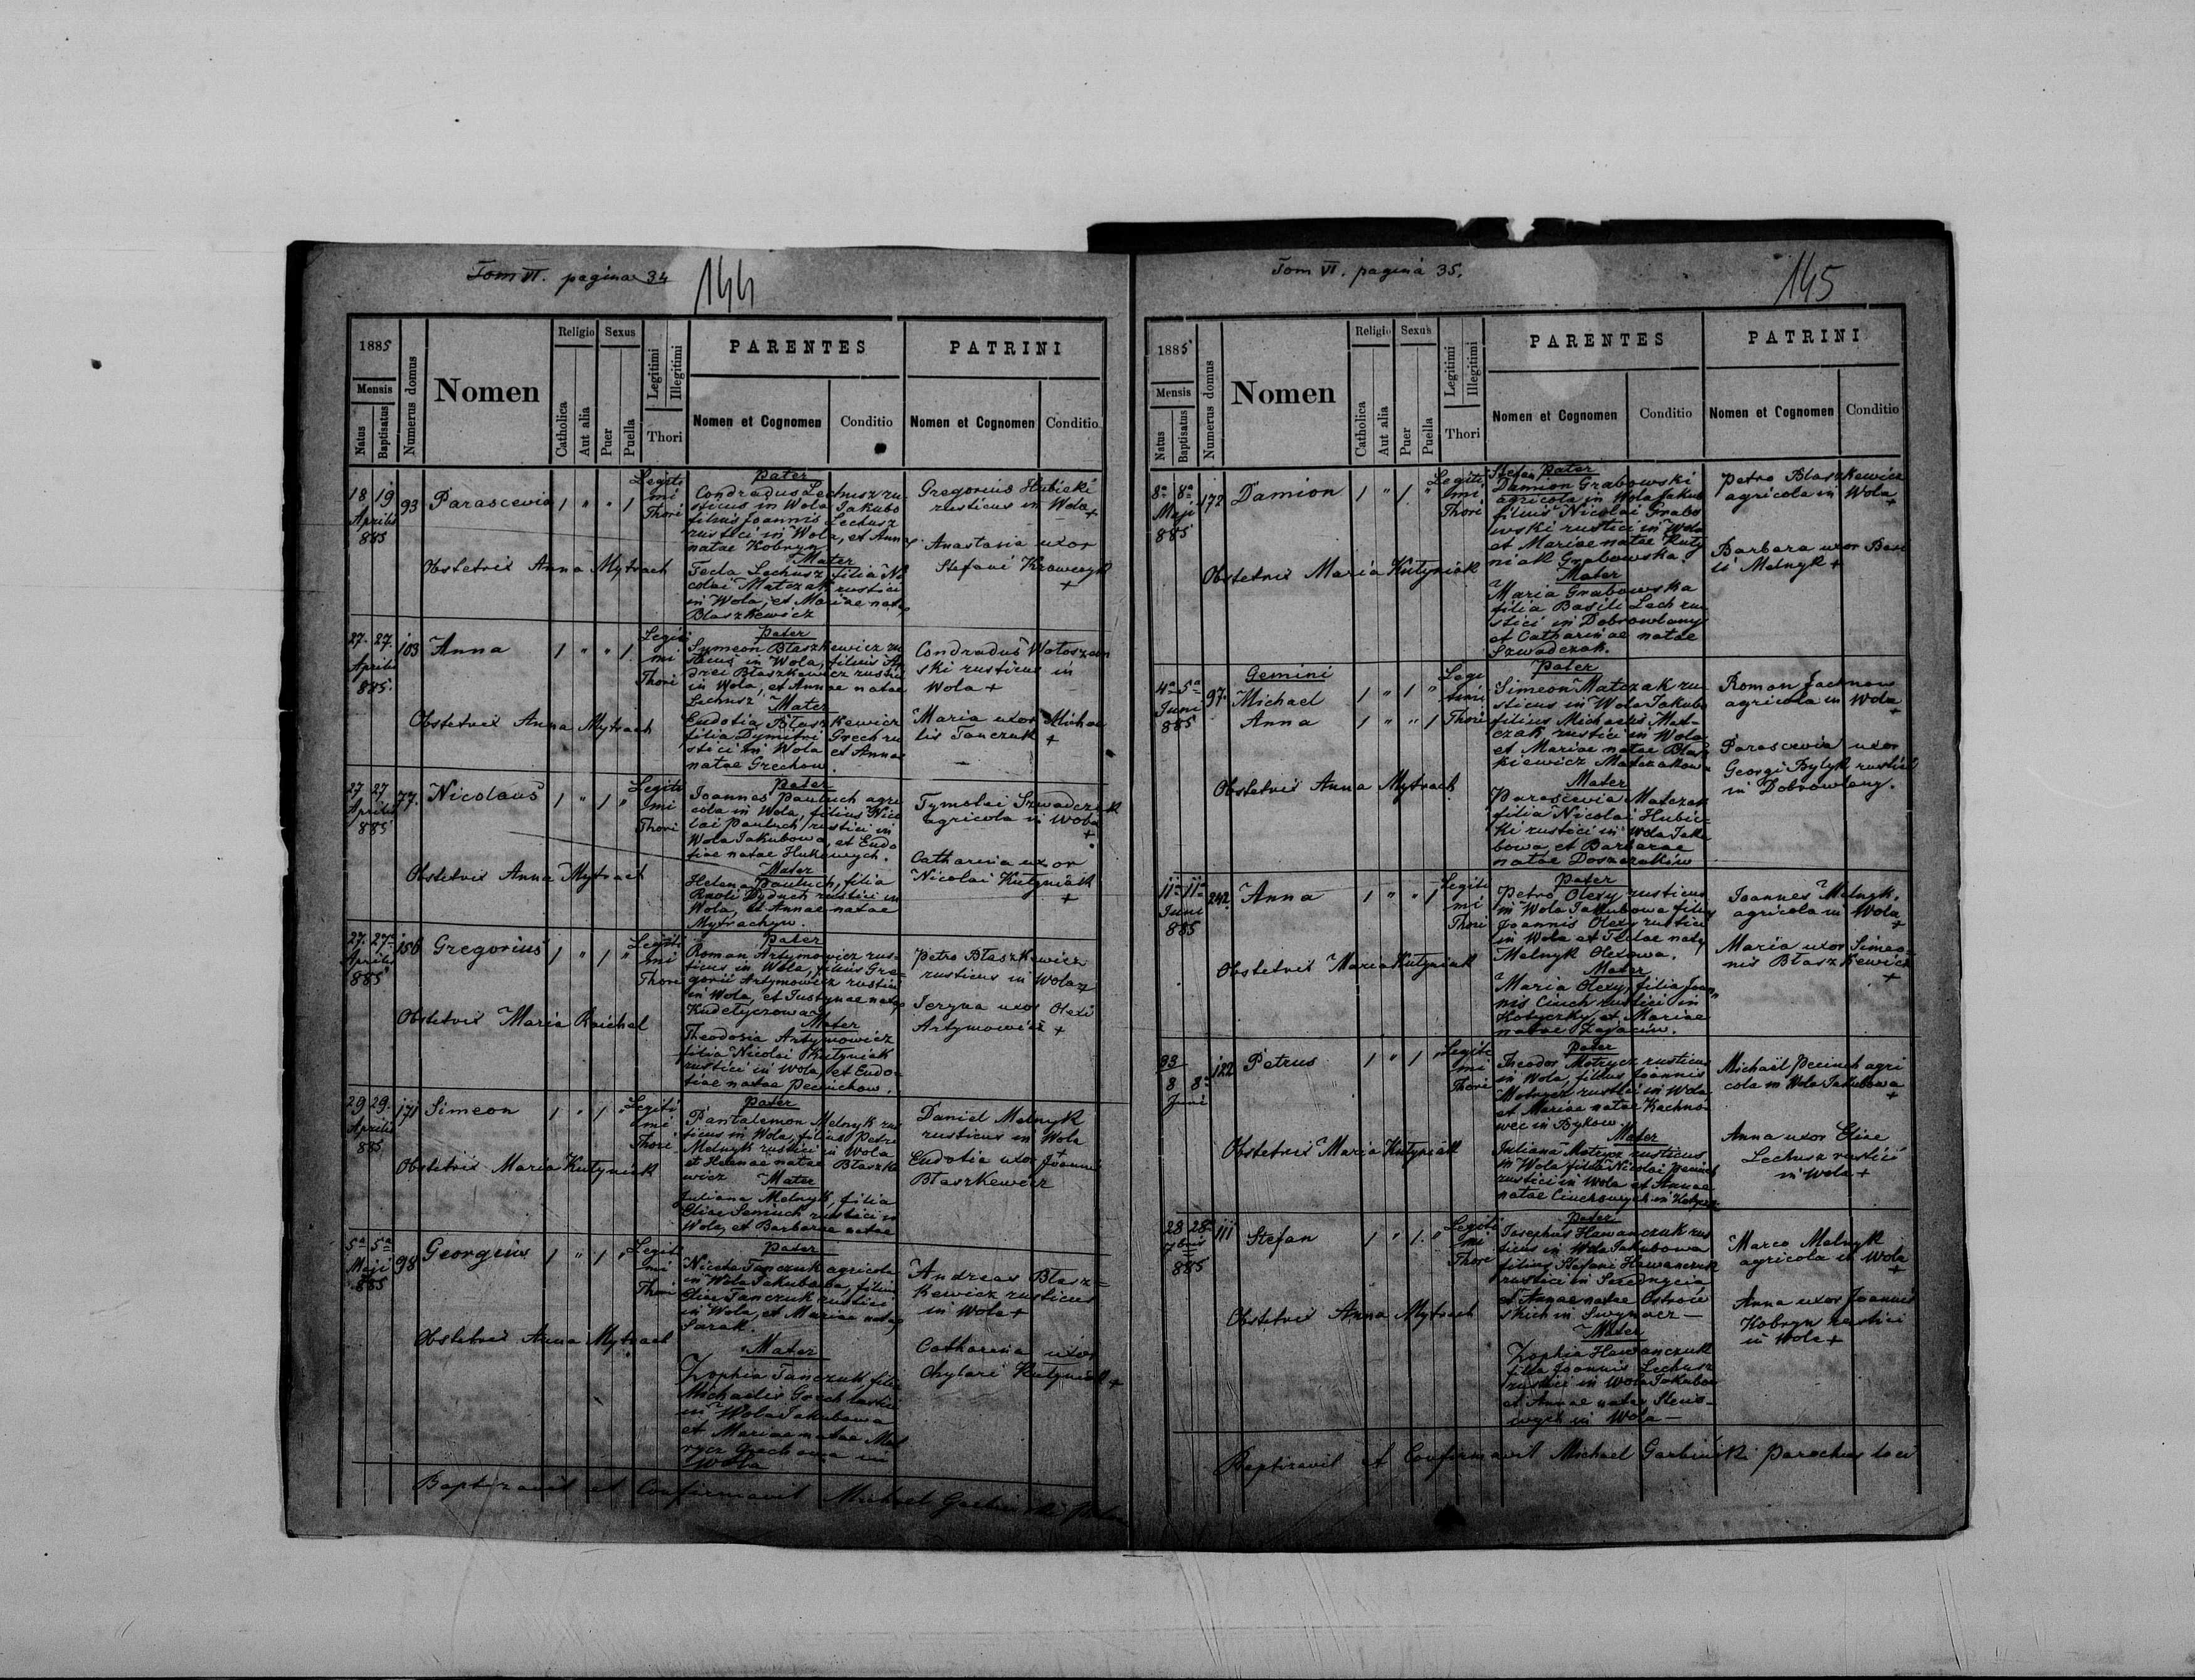 Tom VI. pagina 34
144
1885
Mensis
Natus
Baptisatus
Numerus domus
Nomen
Religio
Catholica
Aut alia
Sexus
Puer
Puella
Legitimi
Illegitimi
Thori
PARENTES
Nomen et Cognomen
Conditio
PATRINI
Nomen et Cognomen
Conditio
18 19
Aprilis
885
93
Parascevia
1 " " 1
Legiti
mi
Thori
Pater
Condradus Lechusz ru-
sticus in Wola Jakubo
filius Joannis Lechusz
rustici in Wola, et Annae
natae Kobryn
Mater
Tecla Lechusz filia Ni
colai Matczak rustici
in Wola, et Mariae natae
Błaszkewicz
Gregorius Hubicki
rusticus in Wola +
Anastasia uxor
Stefani Kraweczyk
+
Obstetrix Anna Mytrach
27. 27.
Aprilis
885.
103
Anna
1 " " 1
Legiti
mi
Thori
Pater
Symeon Błaszkewicz ru
sticus in Wola, filius An
drei Błaszkewicz rustici
in Wola, et Annae natae
Lechusz
Mater
Eudotia Błaszkewicz
filia Dymitri Grech ru
stici in Wola et Annae
natae Grechow
Condradus Wołoszan
ski rusticus in
Wola +
Maria uxor Micha
lis Tanczuk +
Obstetrix Anna Mytrach
27 27
Aprilis
885
77.
Nicolaus
1 " 1 "
Legiti
mi
Thori
Pater
Joannes Pauluch agri
cola in Wola, filius Nico
lai Pauluch rustici in
Wola Jakubowa, et Eudo
tiae natae Hukewych.
Mater
Helena Pauluch, filia
Pauli Dyduch rustici in
Wola, et Annae natae
Mytrachyn.
Tymotai Szwadczak
agricola in Wola
+
Catharina uxor
Nicolai Kutyniak
+
Obstetrix Anna Mytrach
27. 27.
Aprilis
885
156
Gregorius
1 " 1 "
Legiti
mi
Thori
Pater
Roman Artymowicz rus-
ticus in Wola, filius Gre-
gorii Artymowicz rustici
in Wola, et Justynae natae
Kudetyczowa
Mater
Theodosia Artymowicz
filia Nicolai Kutyniak
rustici in Wola, et Eudo-
tiae natae Peciuchow.
Petro Błaszkewicz
rusticus in Wola
uxor Olexi
Artymowicz +
Obstetrix Maria Raichel
29 29.
Aprilis
885
171
Simeon
1 " 1 "
Legiti
mi
Thori
Pater
Pantalemon Melnyk rus
ticus in Wola, filius Petri
Melnyk rustici in Wola
et Helenae natae Błaszke
wicz
Mater
Juliana Melnyk, filia
Eliae Seniuch rustici in
Wola, et Barbarae natae
Daniel Melnyk
rusticus in Wola
+
Eudotia uxor Joannis
Błaszkewicz
Obstetrix Maria Kutyniak
5a 5a
Maji
885
98
Georgius
1 " 1 "
Legiti
mi
Thori
Pater
Niceta Tanczuk agricola
in Wola Jakubowa, filius
Eliae Tanczuk rustici
in Wola, et Mariae natae
Sarak.
Mater
Zophia Tanczuk filia
Michaelis Grech rustici
in Wola Jakubowa
et Mariae natae Mot
rycz Grechowa in
Wola
Andreas Błasz=
kewicz rusticus
in Wola +
Catharina uxor
Chylari Kutyniak +
Obstetrix Anna Mytrach
Baptizavit et Confirmavit Michael Garbinski
Tom VI. pagina 35.
145
1885
Mensis
Natus
Baptisatus
Numerus domus
Nomen
Religio
Catholica
Aut alia
Sexus
Puer
Puella
Legitimi
Illegitimi
Thori
PARENTES
Nomen et Cognomen
Conditio
PATRINI
Nomen et Cognomen
Conditio
8a 8a
Maji
885
172
Damion
1 " 1. "
Legiti
mi
Thori
Stefan Pater
Damion Grabowski
agricola in Wola Jakub
filius Nicolai Grabo
wski rustici in Wola
et Mariae natae Kuty
niak Grabowska.
Mater
Maria Grabowska
filia Basili Lech rus
tici in Dobrowlany
et Catharinae natae
Szwadczak.
Petro Błaszkewicz
agricola in Wola
+
Barbara uxor Basi
li Melnyk +
Obstetrix Maria Kutyniak
4a 5a
Juni
885
97.
Gemini
Michael
Anna
1 " 1 "
1 " " 1
Legi
timi
Thori
Pater
Simeon Matczak ru-
sticus in Wola Jakubo
filius Michaelis Mat-
czak rustici in Wola
et Mariae natae Błasz
kiewicz Matczakow
Mater
Parascevia Matczak
filia Nicolai Hubic-
ki rustici in Wola Jaku
bowa, et Barbarae
natae Doszczaków
Roman Jachnow
agricola in Wola
+
Parascevia uxor
Georgi Bylyk rustici
in Dobrowlany.
Obstetrix Anna Mytrach
11a 11a
Juni
885
242.
Anna
1 " " 1
Legiti
mi
Thori
Pater
Petro Olexy rusticus
in Wola Jakubowa filius
Joannis Olexy rustici
in Wola et Teclae natae
Melnyk Olexowa.
Mater
Maria Olexy, filia Joan
nis Ciuch rustici in
Kotyczky, et Mariae
natae Zajaciw.
Joannes Melnyk.
agricola in Wola
+
Maria uxor Simeo-
nis Błaszkewicz
+
Obstetrix Maria Kutyniak
33
8 8a
Juni
122
Petrus
1 " 1 "
Legiti
mi
Thori
Pater
Theodor Motrycz rusticus
in Wola, filius Joannis
Motrycz rustici in Wola
et Mariae natae Kachno-
wec in Bykow
Mater
Juliana Motrycz rusticus
in Wola filia Nicolai Peciuch
rustici in Wola et Annae
natae Ciuchowych in
Michael Peciuch agri
cola in Wola Jakubowa
+
Anna uxor Eliae
Lechusz rustici
in Wola +
Obstetrix Maria Kutyniak
28 28
7bris
885
111
Stefan
1 " 1. "
Legiti
mi
Thori
Pater
Josephus Hawanczuk rus
ticus in Wola Jakubowa
filius Stefani Hawanczuk
rustici in
et Annae natae Ostrow
skich in
Mater
Zophia Hawanczuk
filia Joannis Lechusz
rustici in Wola Jakubow
et Annae natae
wych in Wola —
Marco Melnyk
agricola in Wola
+
Anna uxor Joannis
Kobryn rustici
in Wola +
Obstetrix Anna Mytrach
Baptizavit et Confirmavit Michael Garbiński Parochus loci